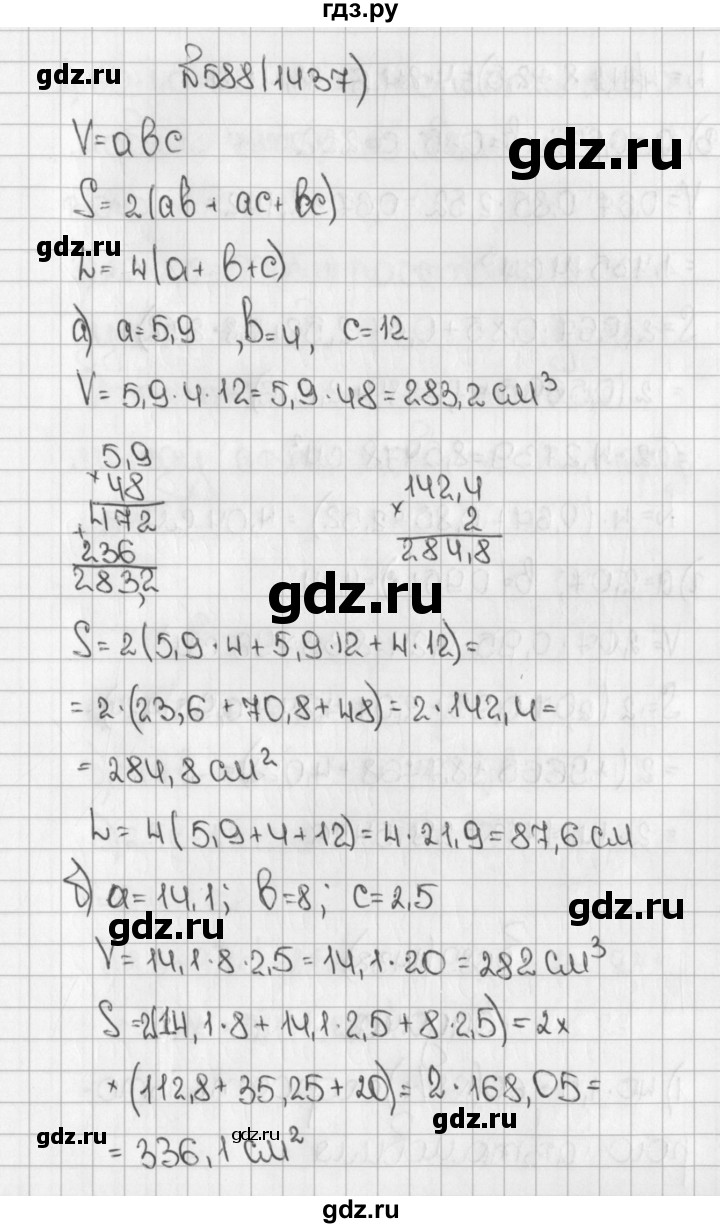 гдз.ру
gdz.ru
№588(1437)
V=abc
gdz.ru
S=2(ab+ac+bc)
gdz.ru
L=4(a+b+c)
а) a=5,9, b=4, c=12
V=5,9·4·12=5,9·48=283,2 см³
5,9
×48
472
+236
283,2
142,4
× 2
284,8
gdz.ru
S=2(5,9·4+5,9·12+4·12)=
=2·(23,6+70,8+48)=2·142,4=
=284,8 см²
L=4(5,9+4+12)=4·21,9=87,6 см
б) a=14,1; b=8; c=2,5
gdz.ru
gdz.ru
V=14,1·8·2,5=14,1·20=282 см³
S=2(14,1·8+14,1·2,5+8·2,5)=2×
×(112,8+35,25+20)=2·168,05=
gdz.ru
gdz.ru
gdz.ru
=336,1 см²
gdz.ru